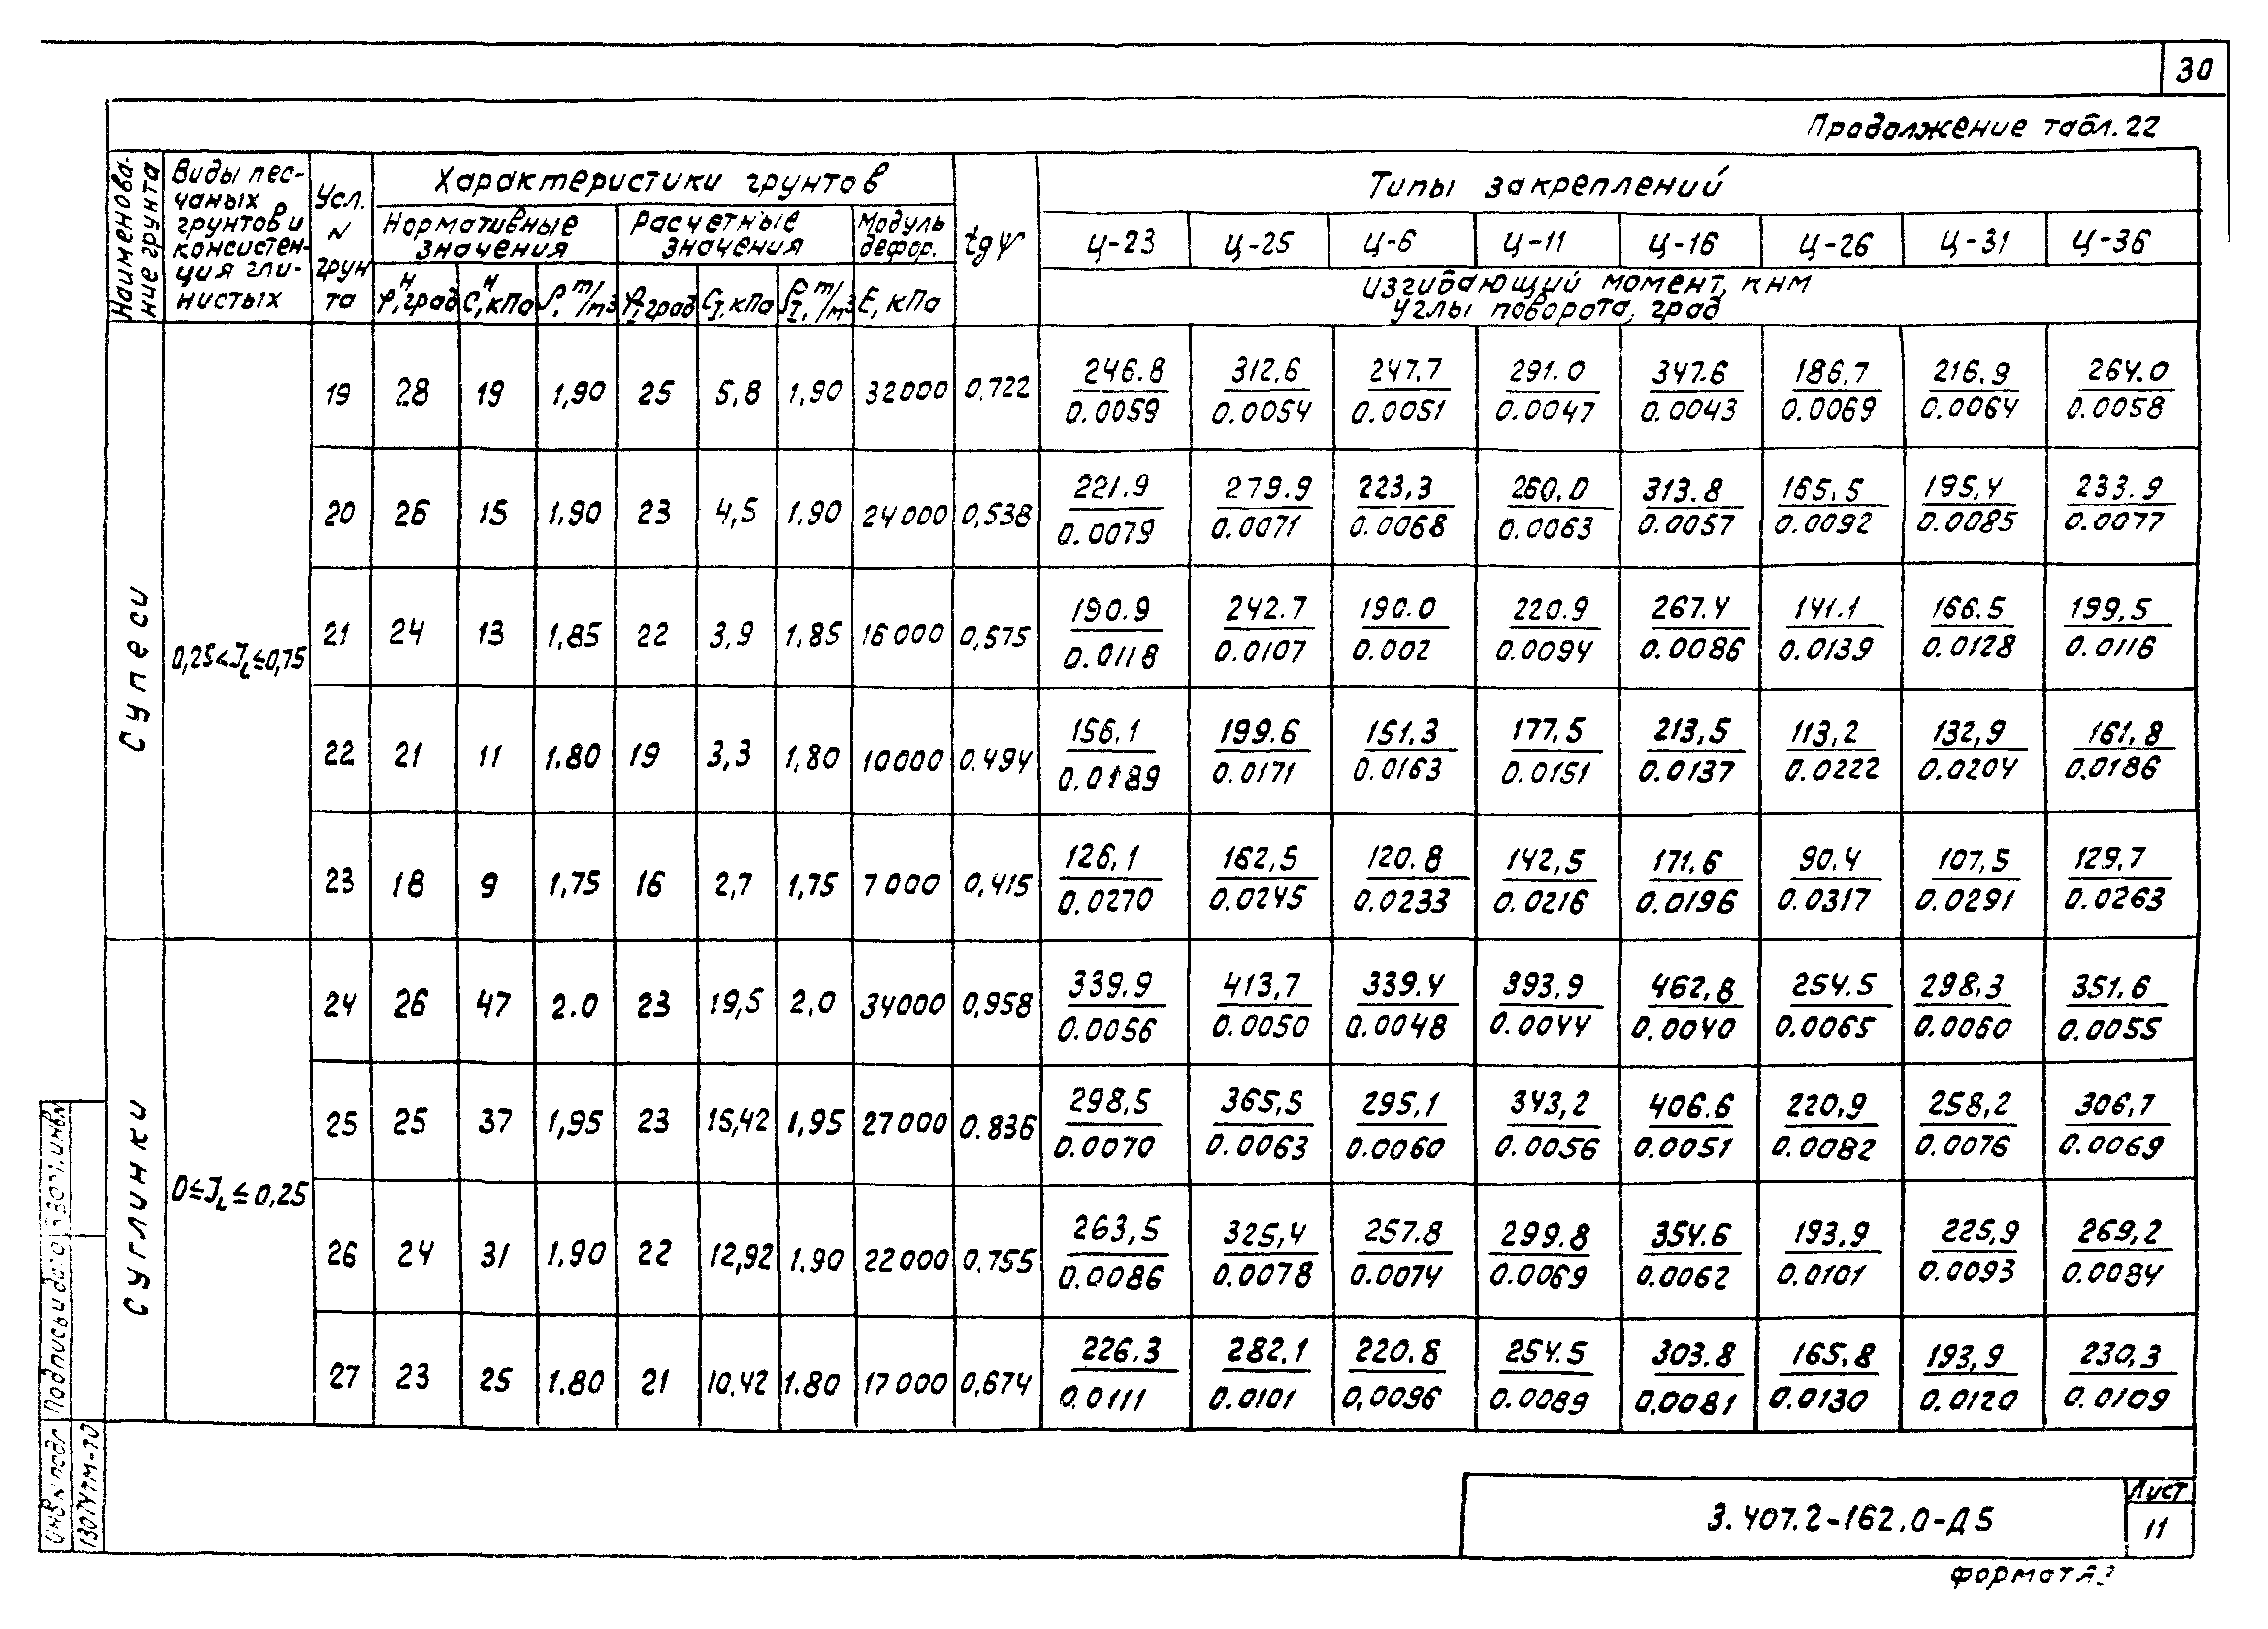 30
Продолжение табл. 22
Наименование грунта
Виды песчаных грунтов и консистенция глинистых
Усл. N грунта
Характеристики грунтов
Нормативные значения
Расчетные значения
Модуль дефор.
tgψ
Типы закреплений
φᴴ, град
Cᴴ, кПа
ρ, т/м3
φI, град
CI, кПа
ρI, т/м3
E, кПа
Ц-23 Ц-25 Ц-6 Ц-11 Ц-16 Ц-26 Ц-31 Ц-36
изгибающий момент, кнм
углы поворота, град
Супеси
0,25<JL≤0,75
19 28 19 1,90 25 5,8 1,90 32000 0,722
246.8 312,6 247.7 291.0 347.6 186,7 216.9 264.0
0.0059 0.0054 0.0051 0.0047 0.0043 0.0069 0.0064 0.0058
20 26 15 1.90 23 4,5 1.90 24000 0,538
221.9 279.9 223,3 260,0 313.8 165,5 195,4 233.9
0.0079 0.0071 0.0068 0.0063 0.0057 0.0092 0.0085 0.0077
21 24 13 1.85 22 3,9 1,85 16000 0,575
190.9 242.7 190.0 220.9 267.4 141.1 166.5 199,5
0.0118 0.0107 0.002 0.0094 0.0086 0.0139 0.0128 0.0116
22 21 11 1.80 19 3,3 1,80 10000 0.494
156,1 199.6 151.3 177.5 213,5 113,2 132,9 161,8
0.0189 0.0171 0.0163 0.0151 0.0137 0.0222 0.0204 0.0186
23 18 9 1,75 16 2,7 1,75 7000 0,415
126,1 162,5 120.8 142,5 171.6 90.4 107,5 129.7
0.0270 0.0245 0.0233 0.0216 0.0196 0.0317 0.0291 0.0263
Суглинки
0≤JL≤0,25
24 26 47 2.0 23 19,5 2,0 34000 0,958
339.9 413,7 339.4 393.9 462,8 254.5 298,3 351.6
0.0056 0.0050 0.0048 0.0044 0.0040 0.0065 0.0060 0.0055
25 25 37 1,95 23 15,42 1,95 27000 0.836
298,5 365,5 295,1 343,2 406.6 220,9 258,2 306,7
0.0070 0.0063 0.0060 0.0056 0.0051 0.0082 0.0076 0.0069
26 24 31 1.90 22 12,92 1.90 22000 0,755
263,5 325,4 257.8 299.8 354.6 193,9 225,9 269,2
0.0086 0.0078 0.0074 0.0069 0.0062 0.0101 0.0093 0.0084
27 23 25 1.80 21 10,42 1.80 17000 0,674
226.3 282.1 220.8 254.5 303.8 165,8 193,9 230,3
0.0111 0.0101 0,0096 0.0089 0.0081 0.0130 0.0120 0.0109
Подпись и дата
инв N подл
13074ТМ-Т0
3.407.2-162.0-Д5
Лист
11
формат А3